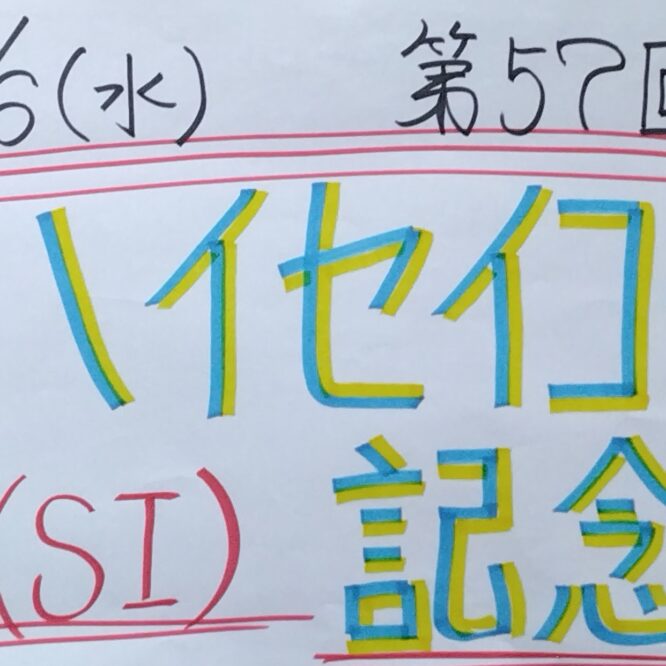 /6(水) 第57回
ハイセイコ
(SI) 記念